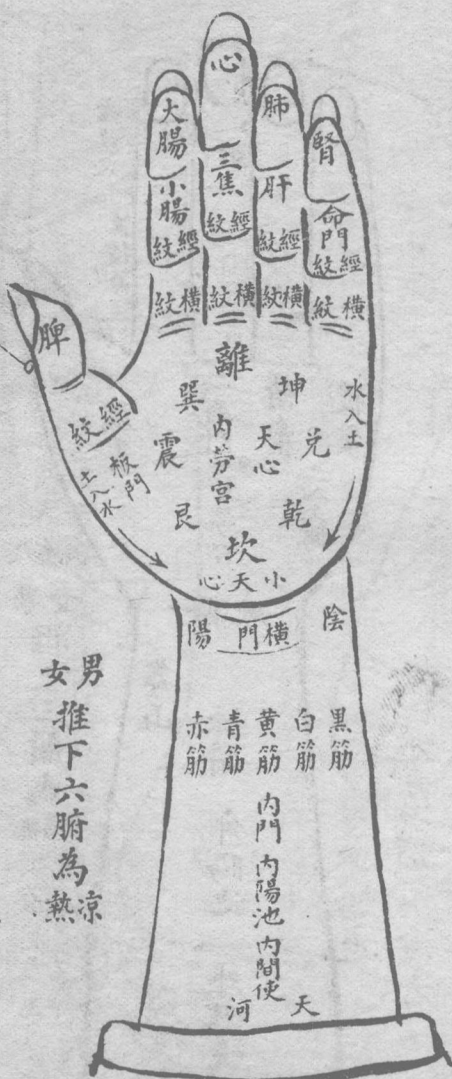 心
大腸
肺
腎
小腸
三焦
肝
命門
經紋
經紋
經紋
經紋
橫紋
橫紋
橫紋
橫紋
脾
經紋
離
巽
坤
水入土
震
內勞宮
天心
兌
板門
土入水
艮
乾
坎
小天心
陽
橫門
陰
赤筋
青筋
黃筋
白筋
黑筋
內門
內陽池
內間使
天河
男女推下六腑為涼熱